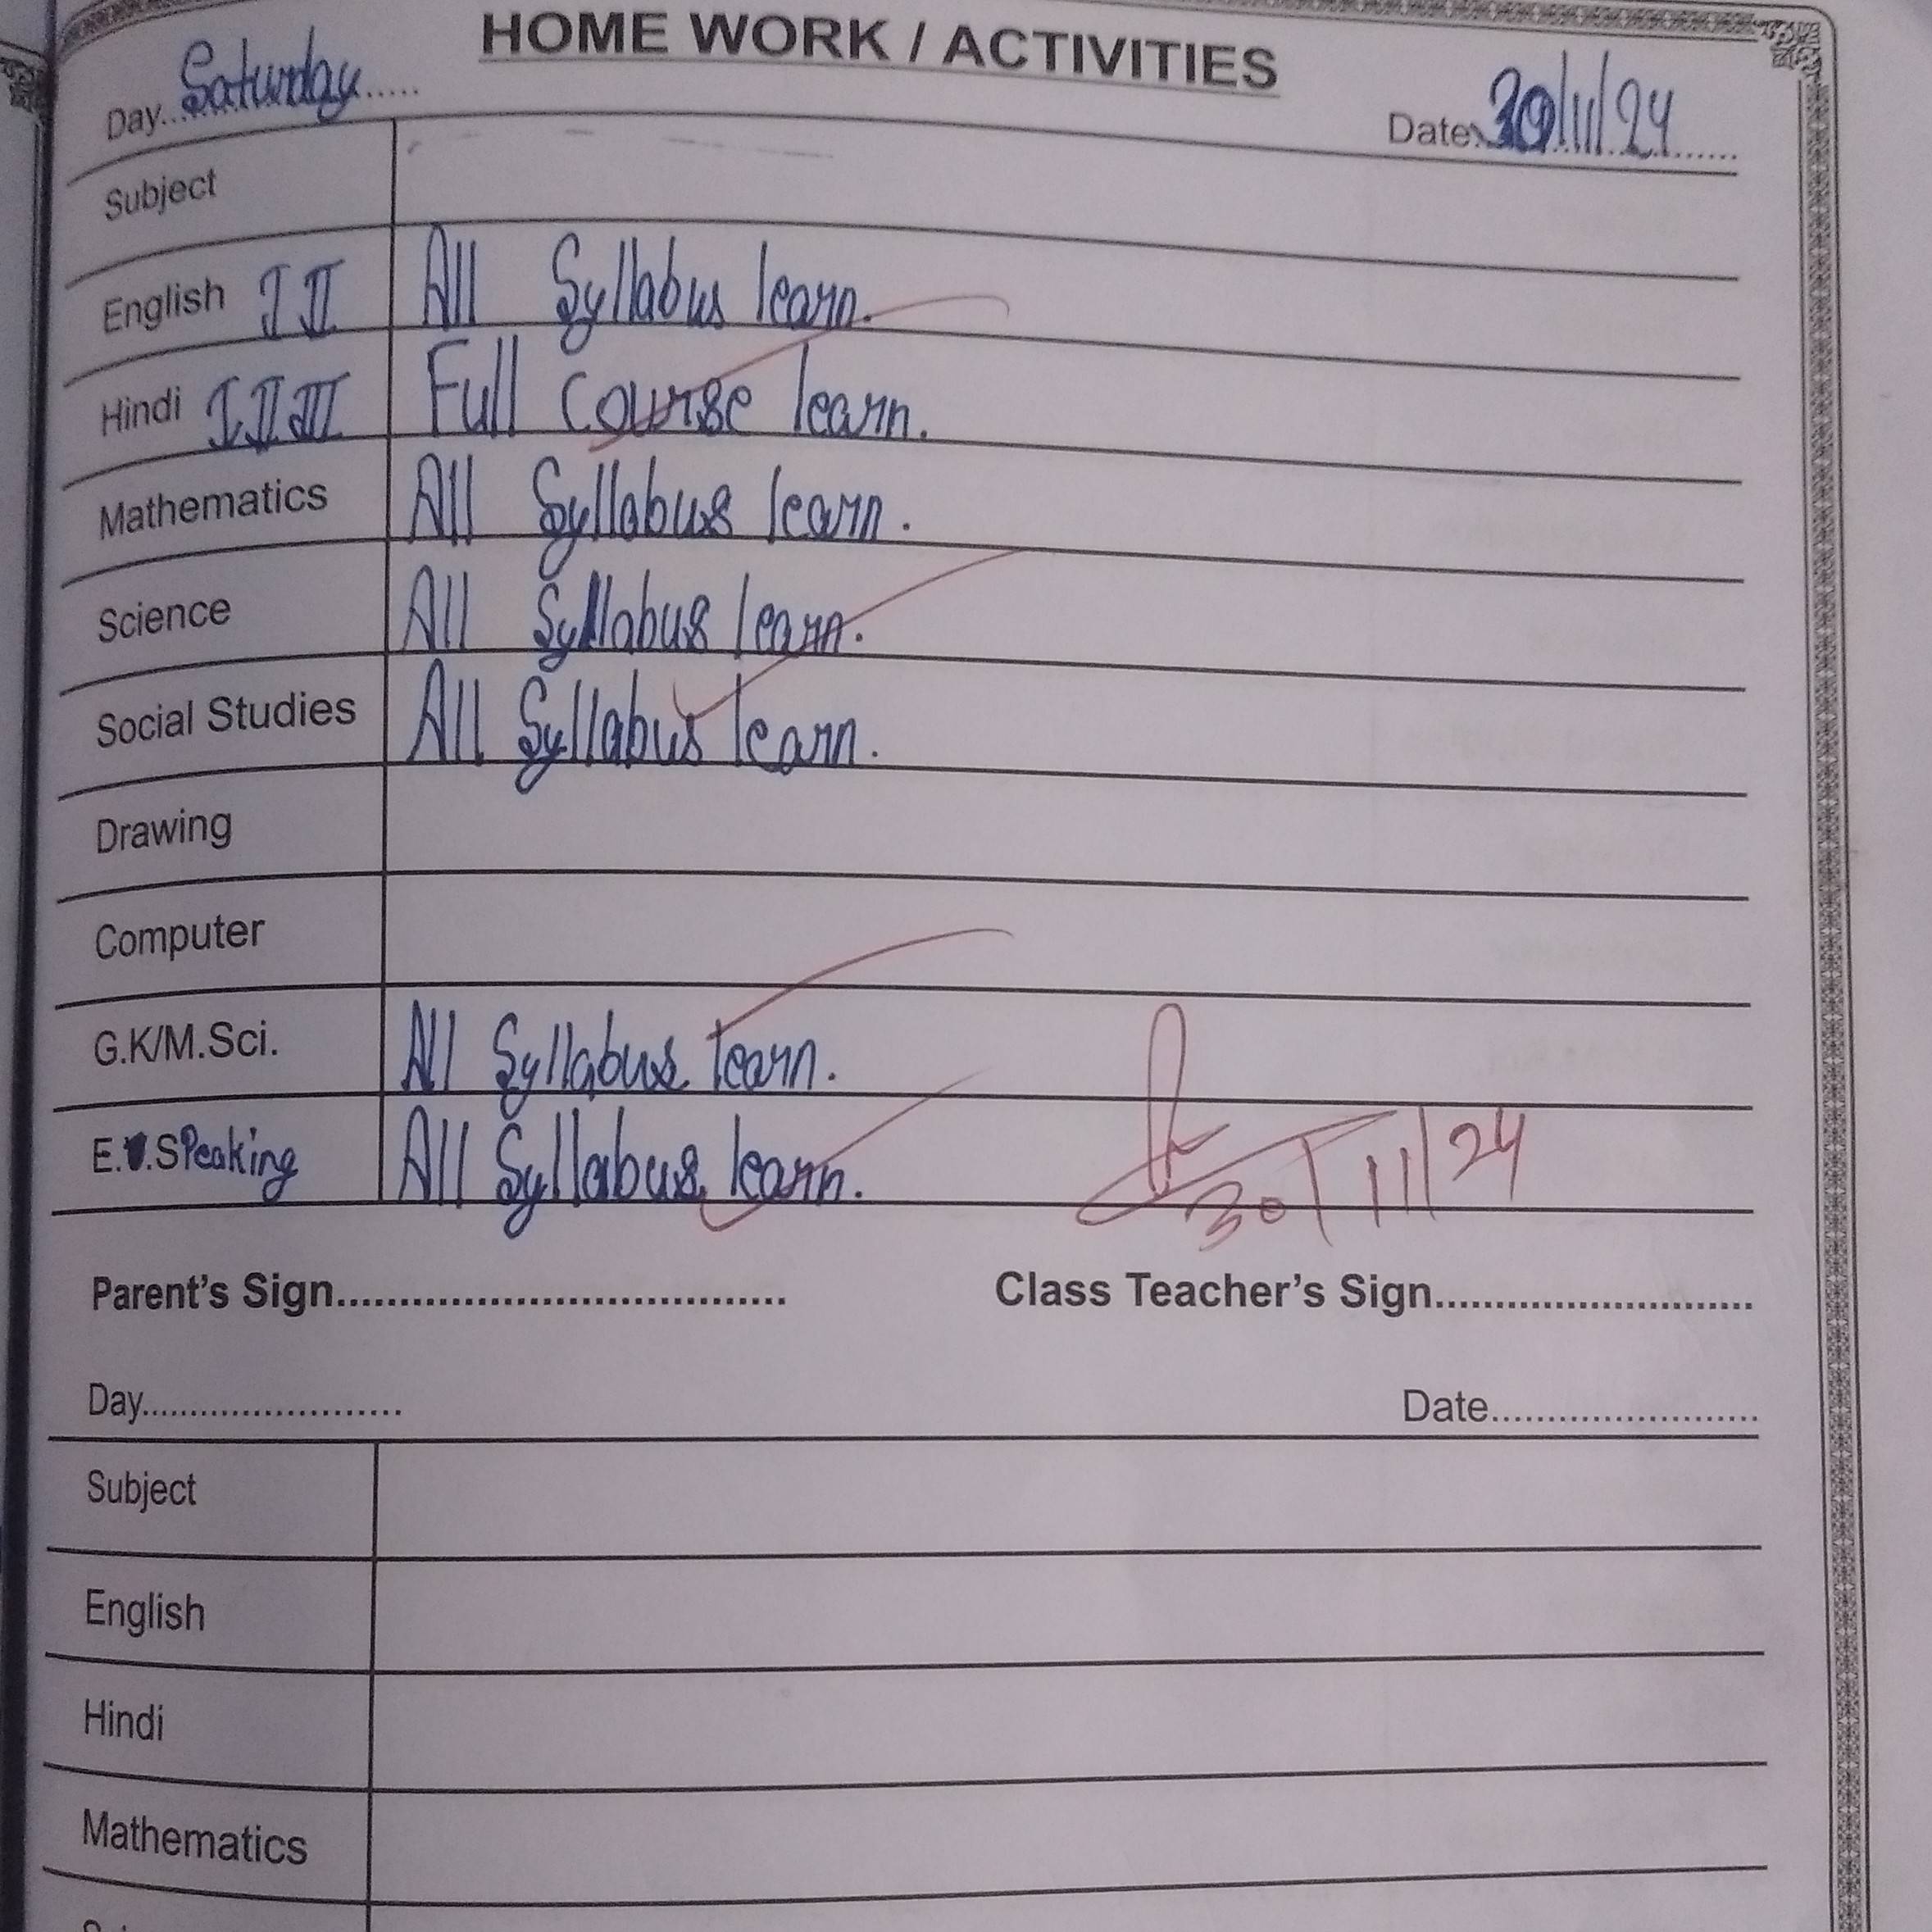 HOME WORK / ACTIVITIES
Day..Saturday..... Date.30/11/24.......
Subject
English I II All Syllabus learn.
Hindi I II III Full Course learn.
Mathematics All Syllabus learn.
Science All Syllabus learn.
Social Studies All Syllabus learn.
Drawing
Computer
G.K/M.Sci. All Syllabus learn.
E.V.Speaking All Syllabus learn.
30/11/24
Parent's Sign.................................... Class Teacher's Sign...........................
Day......................... Date.........................
Subject
English
Hindi
Mathematics